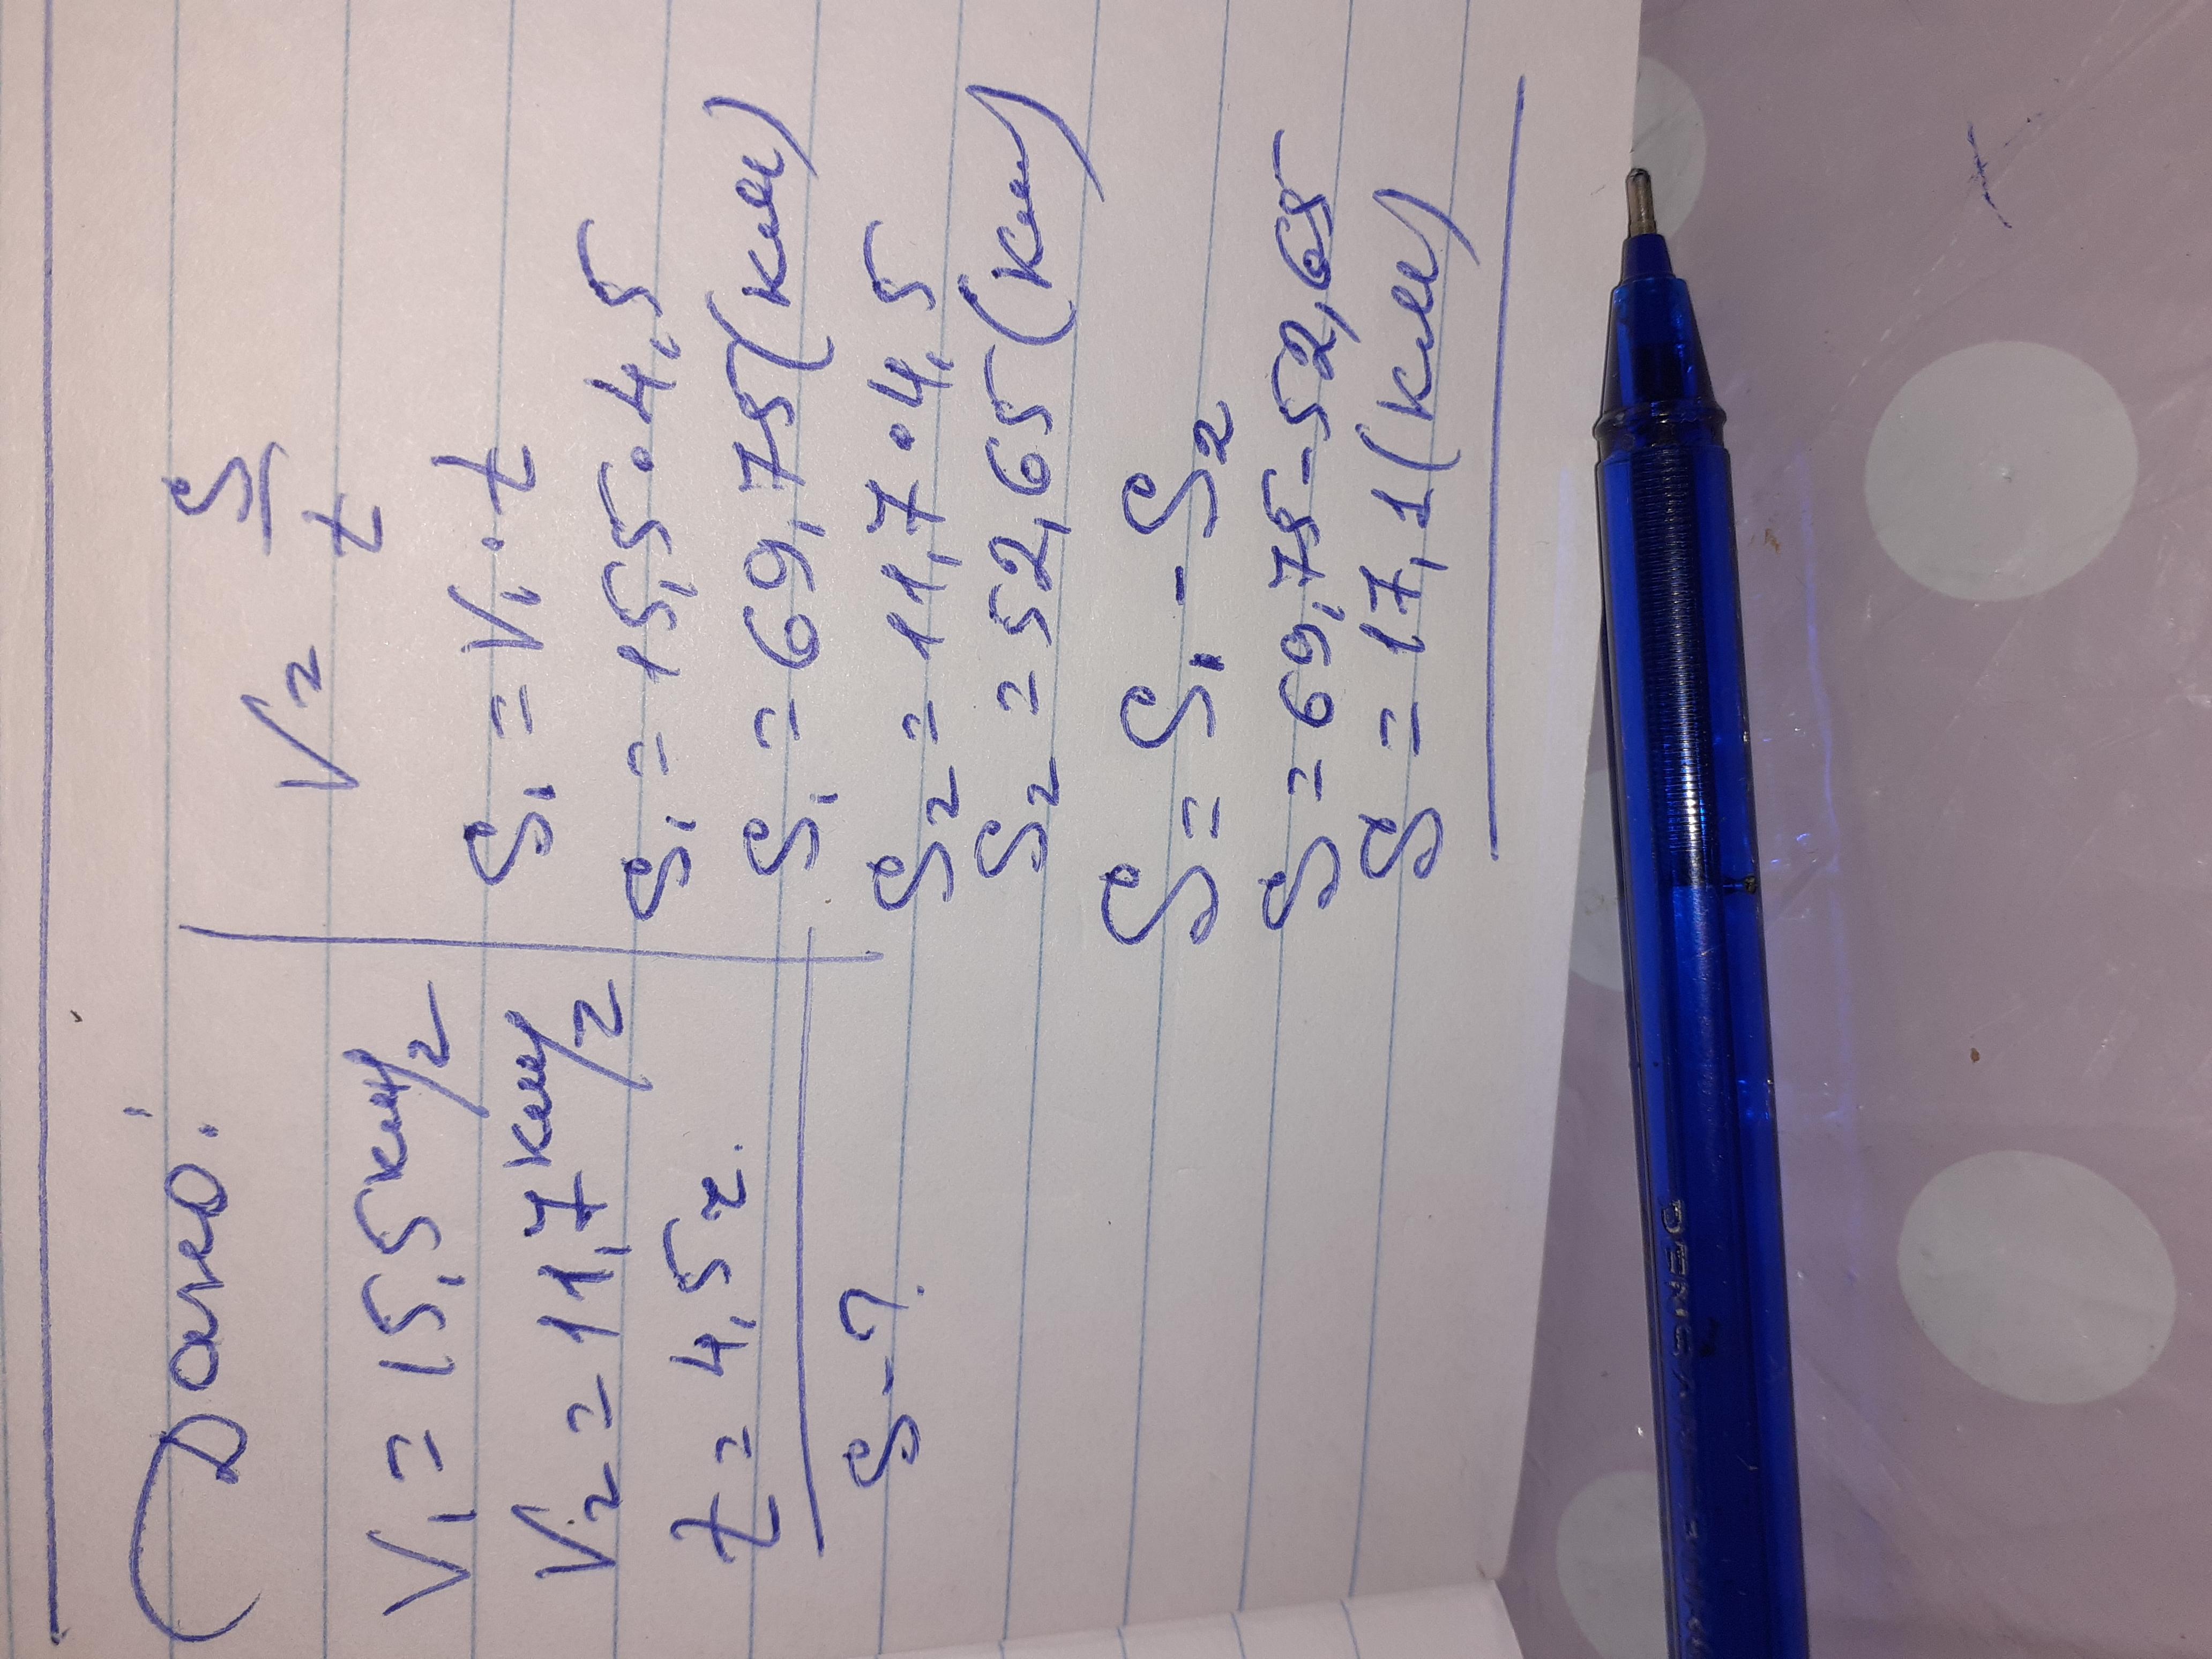 Дано:
V₁ = 15,5 км/г
V₂ = 11,7 км/г
t = 4,5 г.
S - ?
V = S/t
S₁ = V₁ · t
S₁ = 15,5 · 4,5
S₁ = 69,75 (км)
S₂ = 11,7 · 4,5
S₂ = 52,65 (км)
S = S₁ - S₂
S = 69,75 - 52,65
S = 17,1 (км)